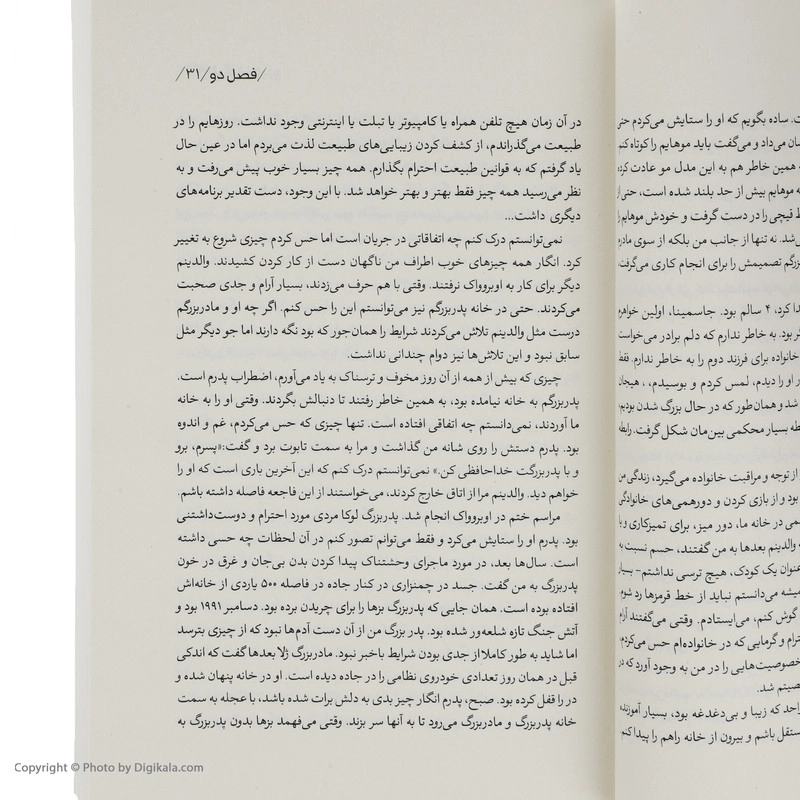 /فصل دو/۳۱/
در آن زمان هیچ تلفن همراه یا کامپیوتر یا تبلت یا اینترنتی وجود نداشت. روزهایم را در
طبیعت می‌گذراندم، از کشف کردن زیبایی‌های طبیعت لذت می‌بردم اما در عین حال
یاد گرفتم که به قوانین طبیعت احترام بگذارم. همه چیز بسیار خوب پیش می‌رفت و به
نظر می‌رسید همه چیز فقط بهتر و بهتر خواهد شد. با این وجود، دست تقدیر برنامه‌های
دیگری داشت...
نمی‌توانستم درک کنم چه اتفاقاتی در جریان است اما حس کردم چیزی شروع به تغییر
کرد. انگار همه چیزهای خوب اطراف من ناگهان دست از کار کردن کشیدند. والدینم
دیگر برای کار به اوبرواک نرفتند. وقتی با هم حرف می‌زدند، بسیار آرام و جدی صحبت
می‌کردند. حتی در خانه پدربزرگم نیز می‌توانستم این را حس کنم. اگر چه او و مادربزرگم
درست مثل والدینم تلاش می‌کردند شرایط را همان‌جور که بود نگه دارند اما جو دیگر مثل
سابق نبود و این تلاش‌ها نیز دوام چندانی نداشت.
چیزی که بیش از همه از آن روز مخوف و ترسناک به یاد می‌آورم، اضطراب پدرم است.
پدربزرگم به خانه نیامده بود، به همین خاطر رفتند تا دنبالش بگردند. وقتی او را به خانه
ما آوردند، نمی‌دانستم چه اتفاقی افتاده است. تنها چیزی که حس می‌کردم، غم و اندوه
بود. پدرم دستش را روی شانه من گذاشت و مرا به سمت تابوت برد و گفت:«پسرم، برو
و با پدربزرگت خداحافظی کن.» نمی‌توانستم درک کنم که این آخرین باری است که او را
خواهم دید. والدینم مرا از اتاق خارج کردند، می‌خواستند از این فاجعه فاصله داشته باشم.
مراسم ختم در اوبرواک انجام شد. پدربزرگ لوکا مردی مورد احترام و دوست‌داشتنی
بود. پدرم او را ستایش می‌کرد و فقط می‌توانم تصور کنم در آن لحظات چه حسی داشته
است. سال‌ها بعد، در مورد ماجرای وحشتناک پیدا کردن بدن بی‌جان و غرق در خون
پدربزرگ به من گفت. جسد در چمنزاری در کنار جاده در فاصله ۵۰۰ یاردی از خانه‌اش
افتاده بوده است. همان جایی که پدربزرگ بزها را برای چریدن برده بود. دسامبر ۱۹۹۱ بود و
آتش جنگ تازه شعله‌ور شده بود. پدر بزرگ من از آن دست آدم‌ها نبود که از چیزی بترسد
اما شاید به طور کاملا از جدی بودن شرایط باخبر نبود. مادربزرگ ژلا بعدها گفت که اندکی
قبل در همان روز تعدادی خودروی نظامی را در جاده دیده است. او در خانه پنهان شده و
در را قفل کرده بود. صبح، پدرم انگار چیز بدی به دلش برات شده باشد، با عجله به سمت
خانه پدربزرگ و مادربزرگ می‌رود تا به آنها سر بزند. وقتی می‌فهمد بزها بدون پدربزرگ به
ساده بگویم که او را ستایش می‌کردم
می‌داد و می‌گفت باید موهایم را کوتاه
همین خاطر هم به این مدل مو عادت
موهایم بیش از حد بلند شده است،
قیچی را در دست گرفت و خودش موهایم
نه تنها از جانب من بلکه از سوی
تصمیمش را برای انجام کاری می‌گرفت
کرد، ۴ سالم بود. جاسمینا، اولین
بود. به خاطر ندارم که دلم برادر می‌خواست
خانواده برای فرزند دوم را به خاطر ندارم.
او را دیدم، لمس کردم و بوسیدم،
شد و همان‌طور که در حال بزرگ شدن بودیم
بسیار محکمی بین‌مان شکل گرفت.
از توجه و مراقبت خانواده می‌گیرد، زندگی
بود و از بازی کردن و دورهمی‌های خانوادگی
در خانه ما، دور میز، برای تمیزکاری
والدینم بعدها به من گفتند، حسم نسبت
عنوان یک کودک، هیچ ترسی نداشتم-
می‌دانستم نباید از خط قرمزها رد
گوش کنم، می‌ایستادم. وقتی می‌گفتند
و گرمایی که در خانواده‌ام حس می‌کردم
خصوصیت‌هایی را در من به وجود آورد که
شد.
که زیبا و بی‌دغدغه بود، بسیار
باشم و بیرون از خانه راهم را پیدا
Copyright © Photo by Digikala.com